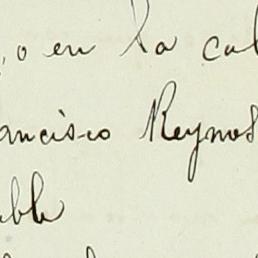 o en la cal
ancisco Reynos
ble